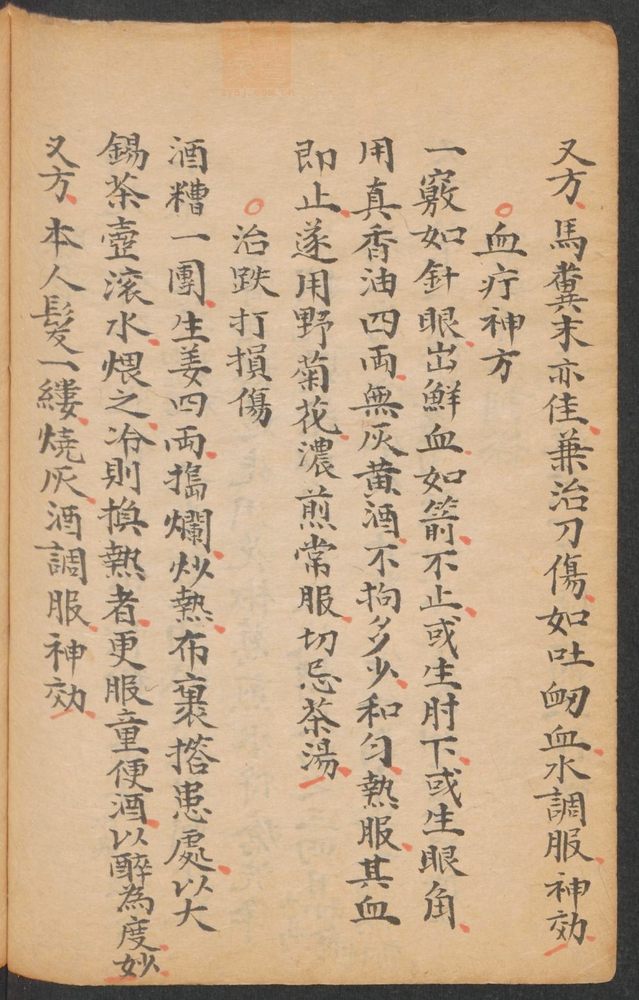 又方馬糞末亦佳兼治刀傷如吐衂血水調服神効
血疔神方
一竅如針眼出鮮血如箭不止或生肘下或生眼角
用真香油四両無灰黄酒不拘多少和匀熱服其血
即止遂用野菊花濃煎常服切忌茶湯
治跌打損傷
酒糟一團生姜四両搗爛炒熱布裹搭患處以大
錫茶壺滚水煨之冷則換熱者更服童便酒以醉為度妙
又方本人髮一縷燒灰酒調服神効